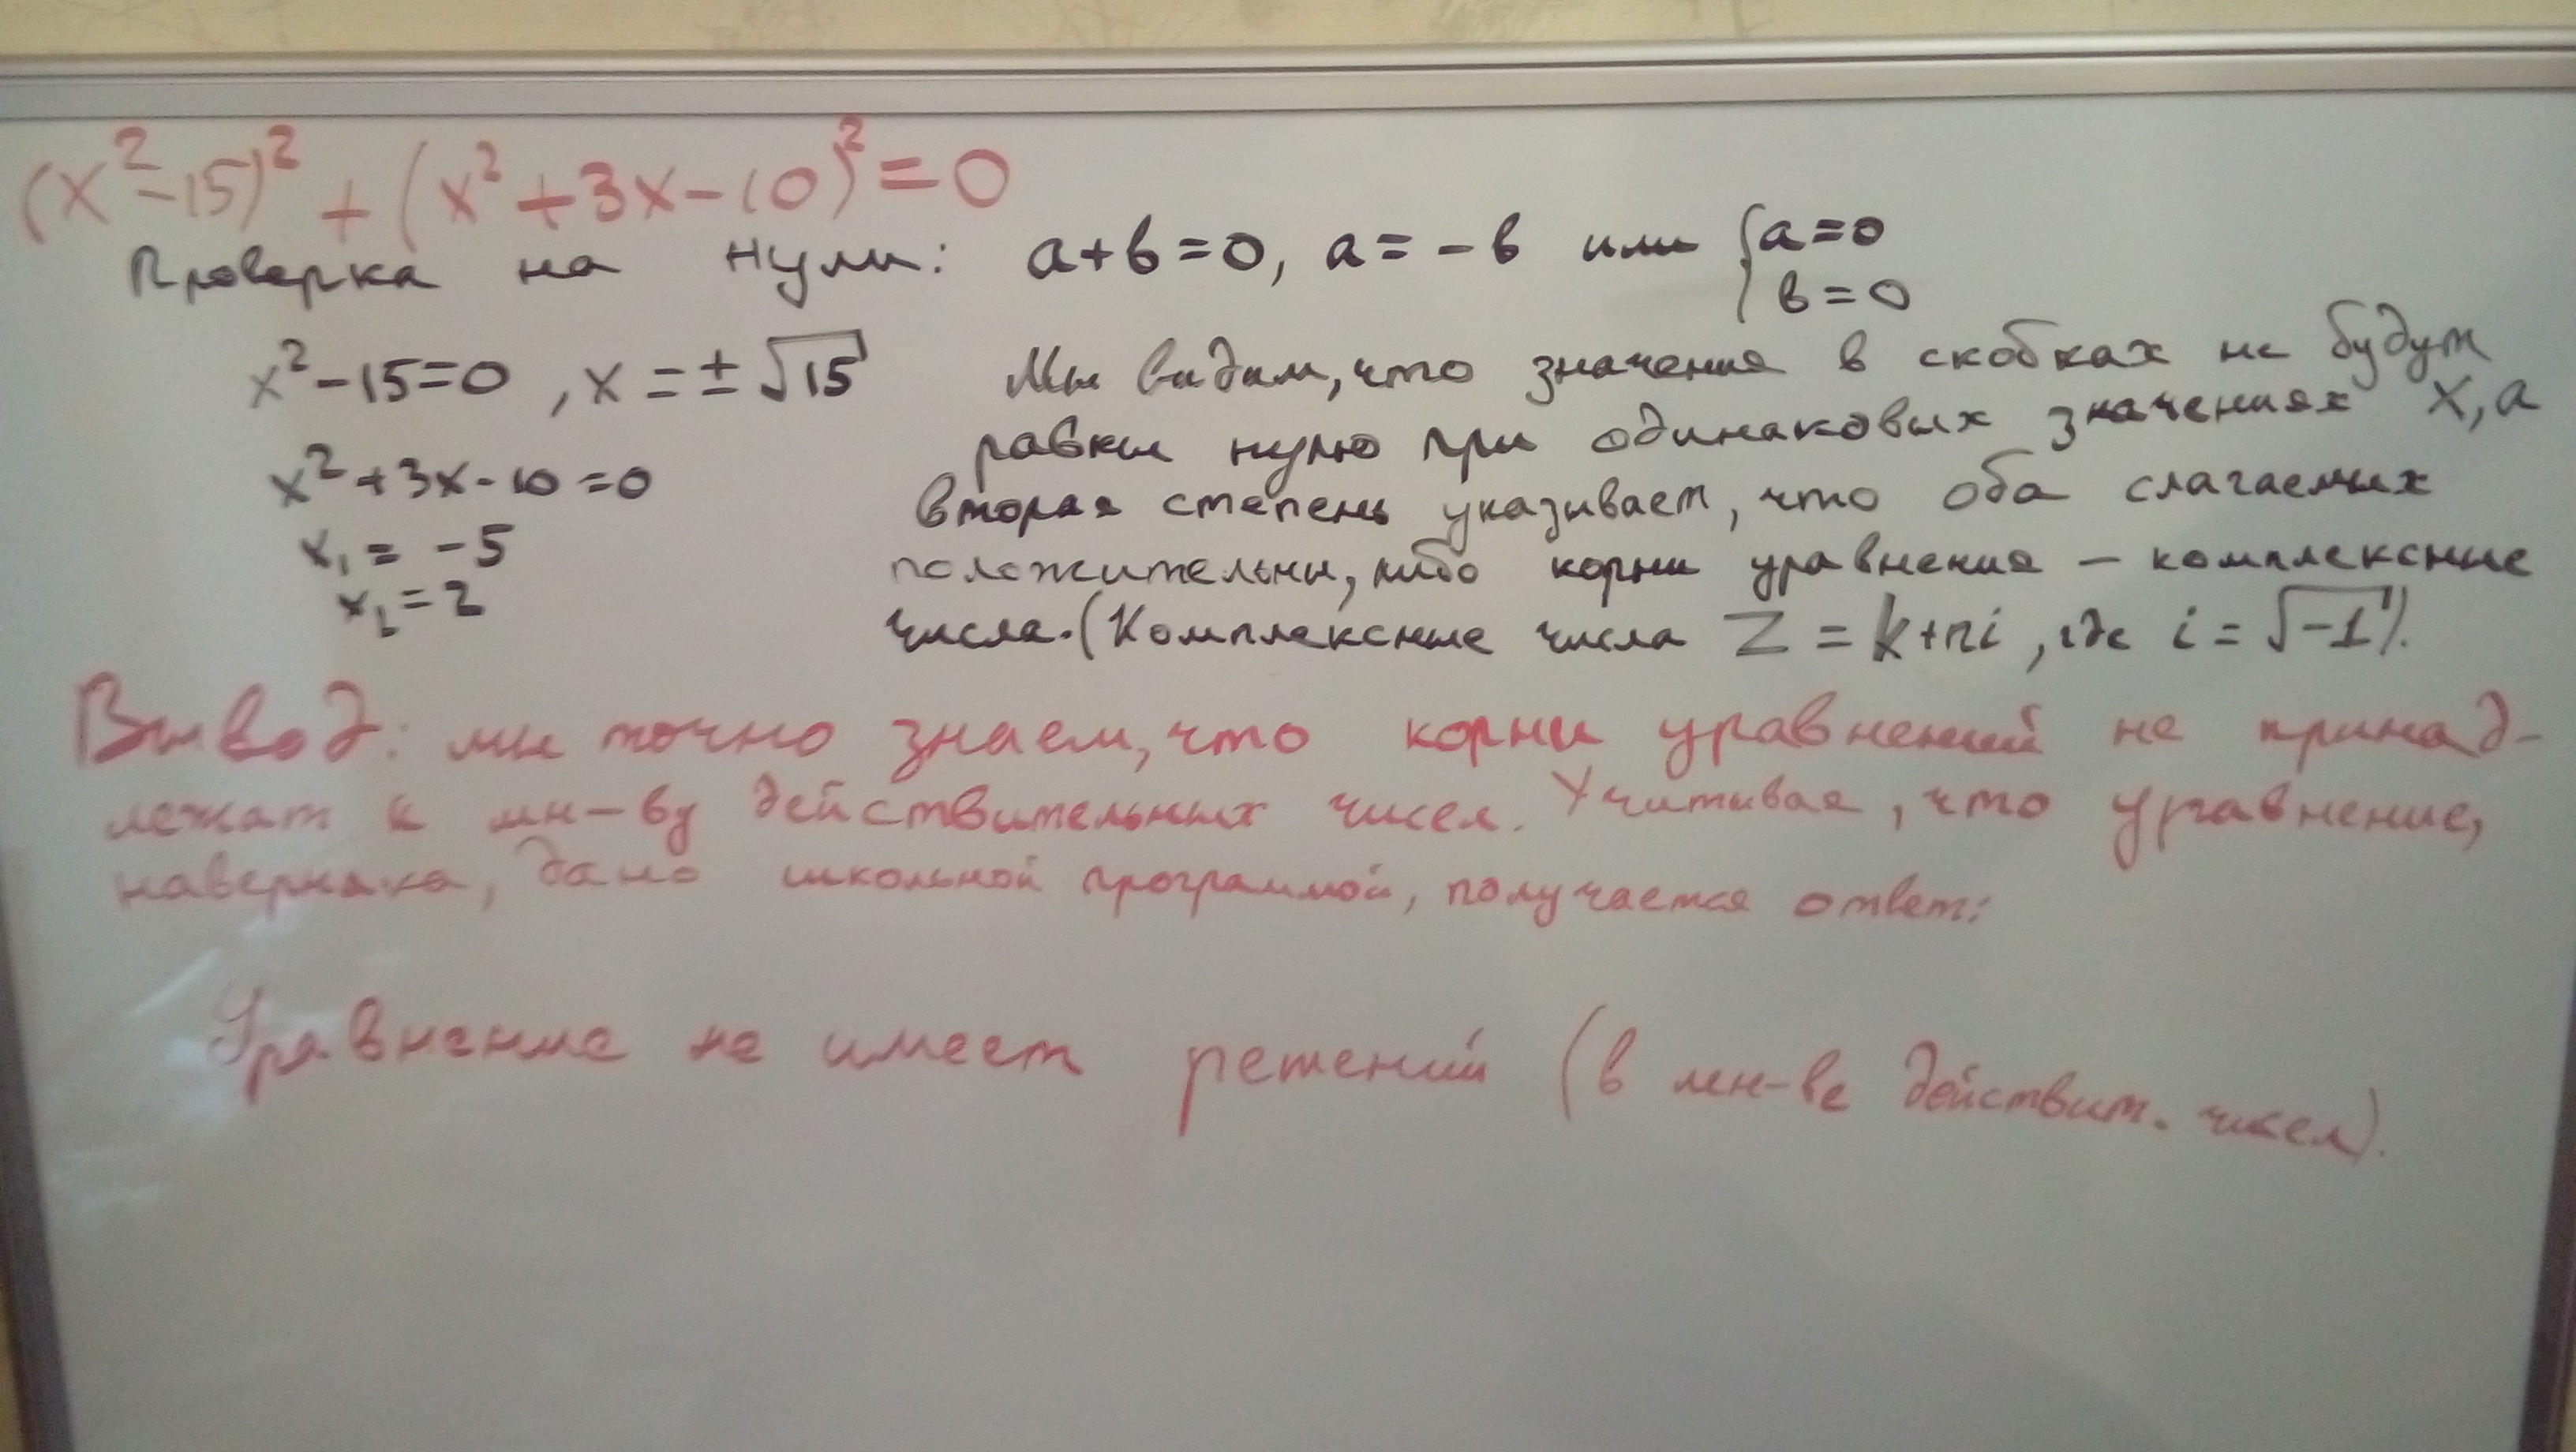 (x²-15)² + (x²+3x-10)²=0
Проверка на нули: a+b=0, a=-b или {a=0
b=0
x²-15=0, x=±√15
Мы видим, что значения в скобках не будут
равны нулю при одинаковых значениях x, а
x²+3x-10=0
вторая степень указывает, что оба слагаемых
x₁= -5
положительны, либо корни уравнения – комплексные
x₂=2
числа. (Комплексные числа Z = k+ni, где i=√-1).
Вывод: мы точно знаем, что корни уравнений не принад-
лежат к мн-ву действительных чисел. Учитывая, что уравнение,
наверняка, дано школьной программой, получается ответ:
Уравнение не имеет решений (в мн-ве действит. чисел).